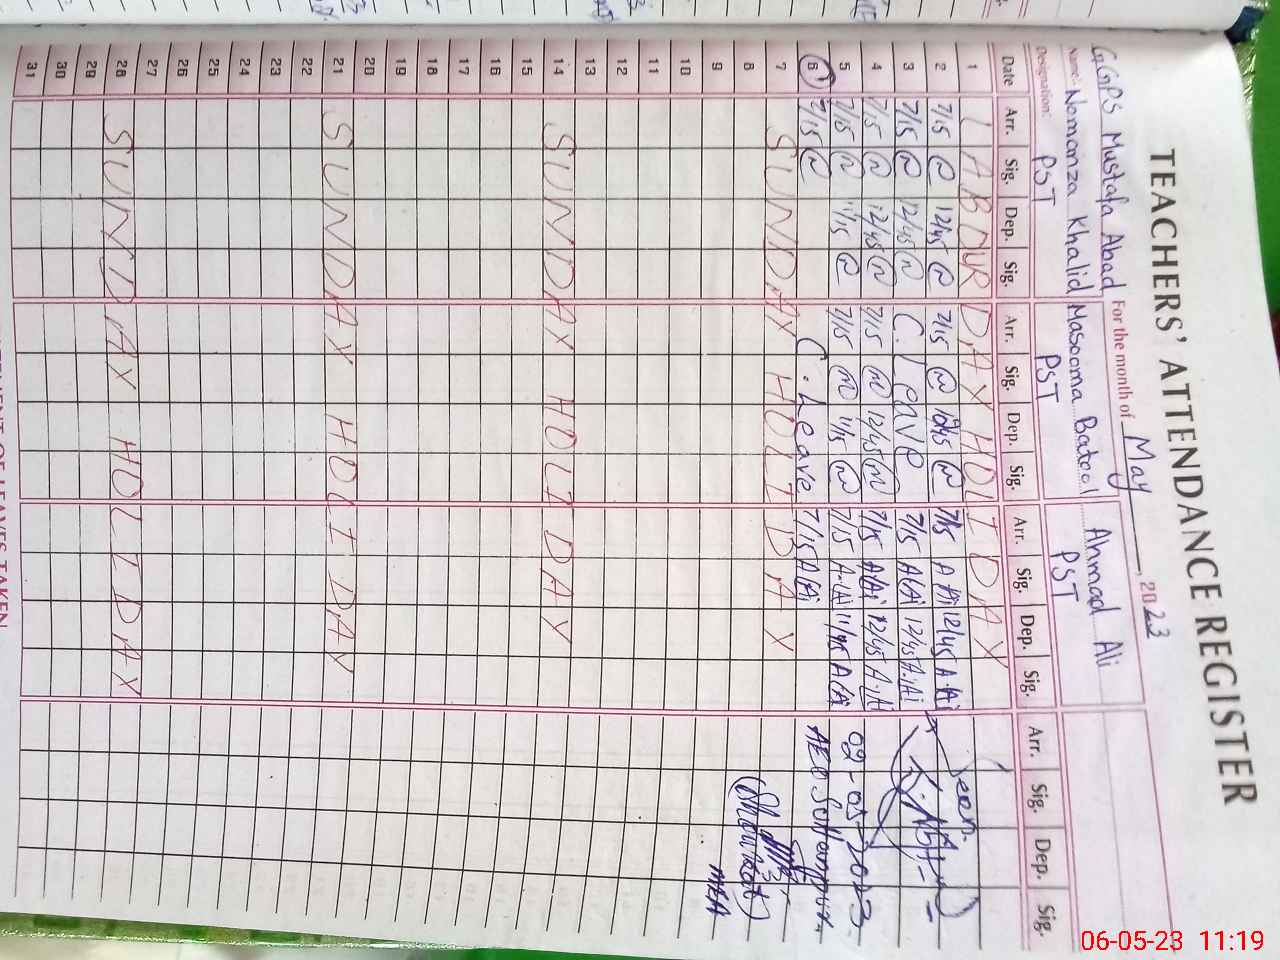 TEACHERS' ATTENDANCE REGISTER
GGPS Mustafa Abad For the month of May 2023
Name: Nomanza Khalid Masooma Batool Ahmad Ali
Designation: PST PST PST
Date Arr. Sig. Dep. Sig. Arr. Sig. Dep. Sig. Arr. Sig. Dep. Sig. Arr. Sig. Dep. Sig.
1 LABOUR DAY HOLIDAY
2 7/15 12/45 7/15 12/45 7/15 A.Ali 12/45 A.Ali Seen
3 7/15 12/45 C. Leave 7/15 A.Ali 12/45 A.Ali
4 7/15 12/45 7/15 12/45 7/15 A.Ali 12/45 A.Ali
5 7/15 11/15 7/15 11/15 7/15 A.Ali 11/45 A.Ali 02-05-2023
6 7/15 C. Leave 7/15 A.Ali AEO
7 SUNDAY HOLIDAY
8 (Shoukat)
9 MEA
10
11
12
13
14 SUNDAY HOLIDAY
15
16
17
18
19
20
21 SUNDAY HOLIDAY
22
23
24
25
26
27
28 SUNDAY HOLIDAY
29
30
31
LEAVES TAKEN
06-05-23 11:19